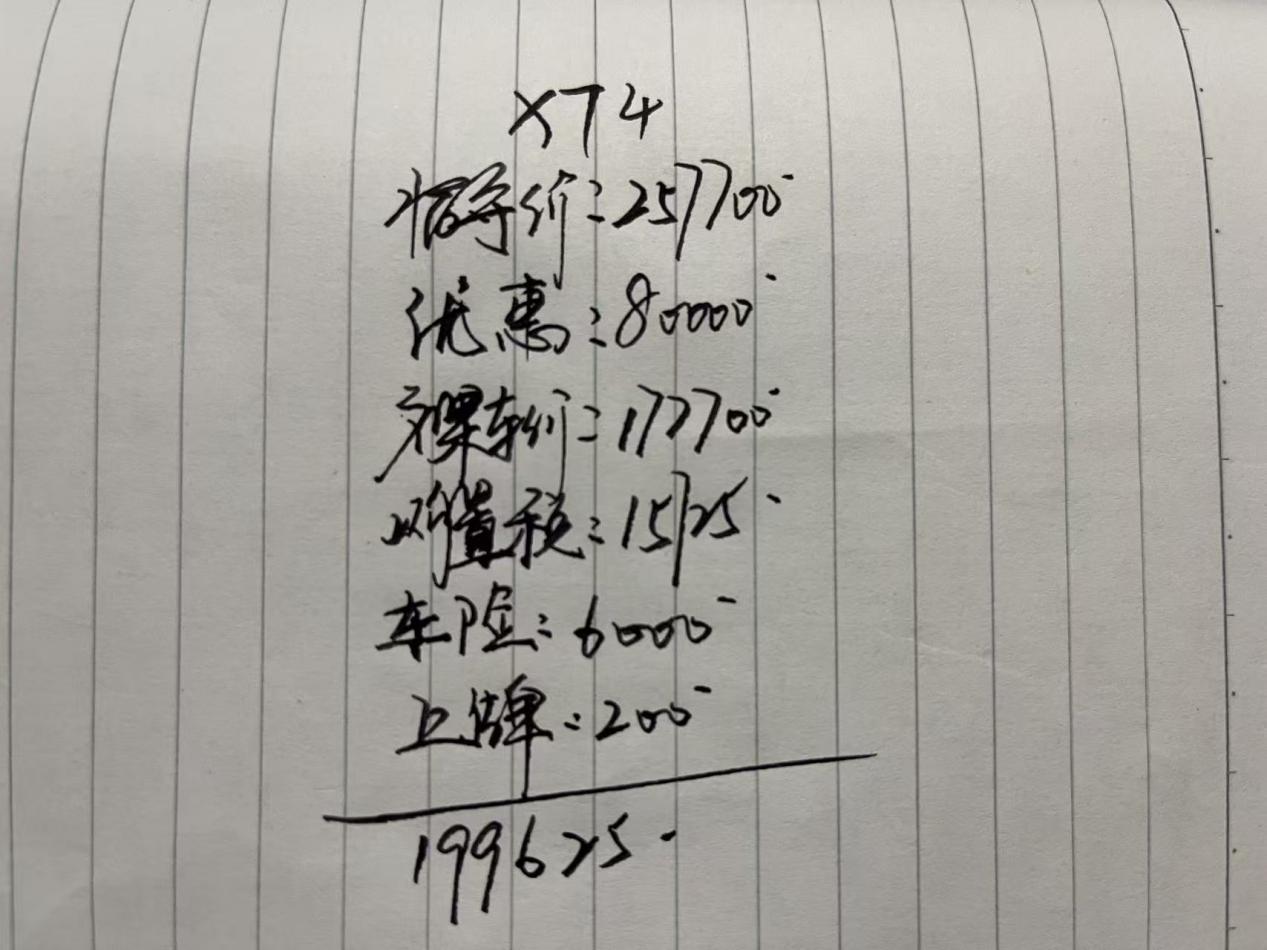 XT4
指导价:257700
优惠:80000
裸车价:177700
购置税:15725
车险:6000
上牌:200
199625